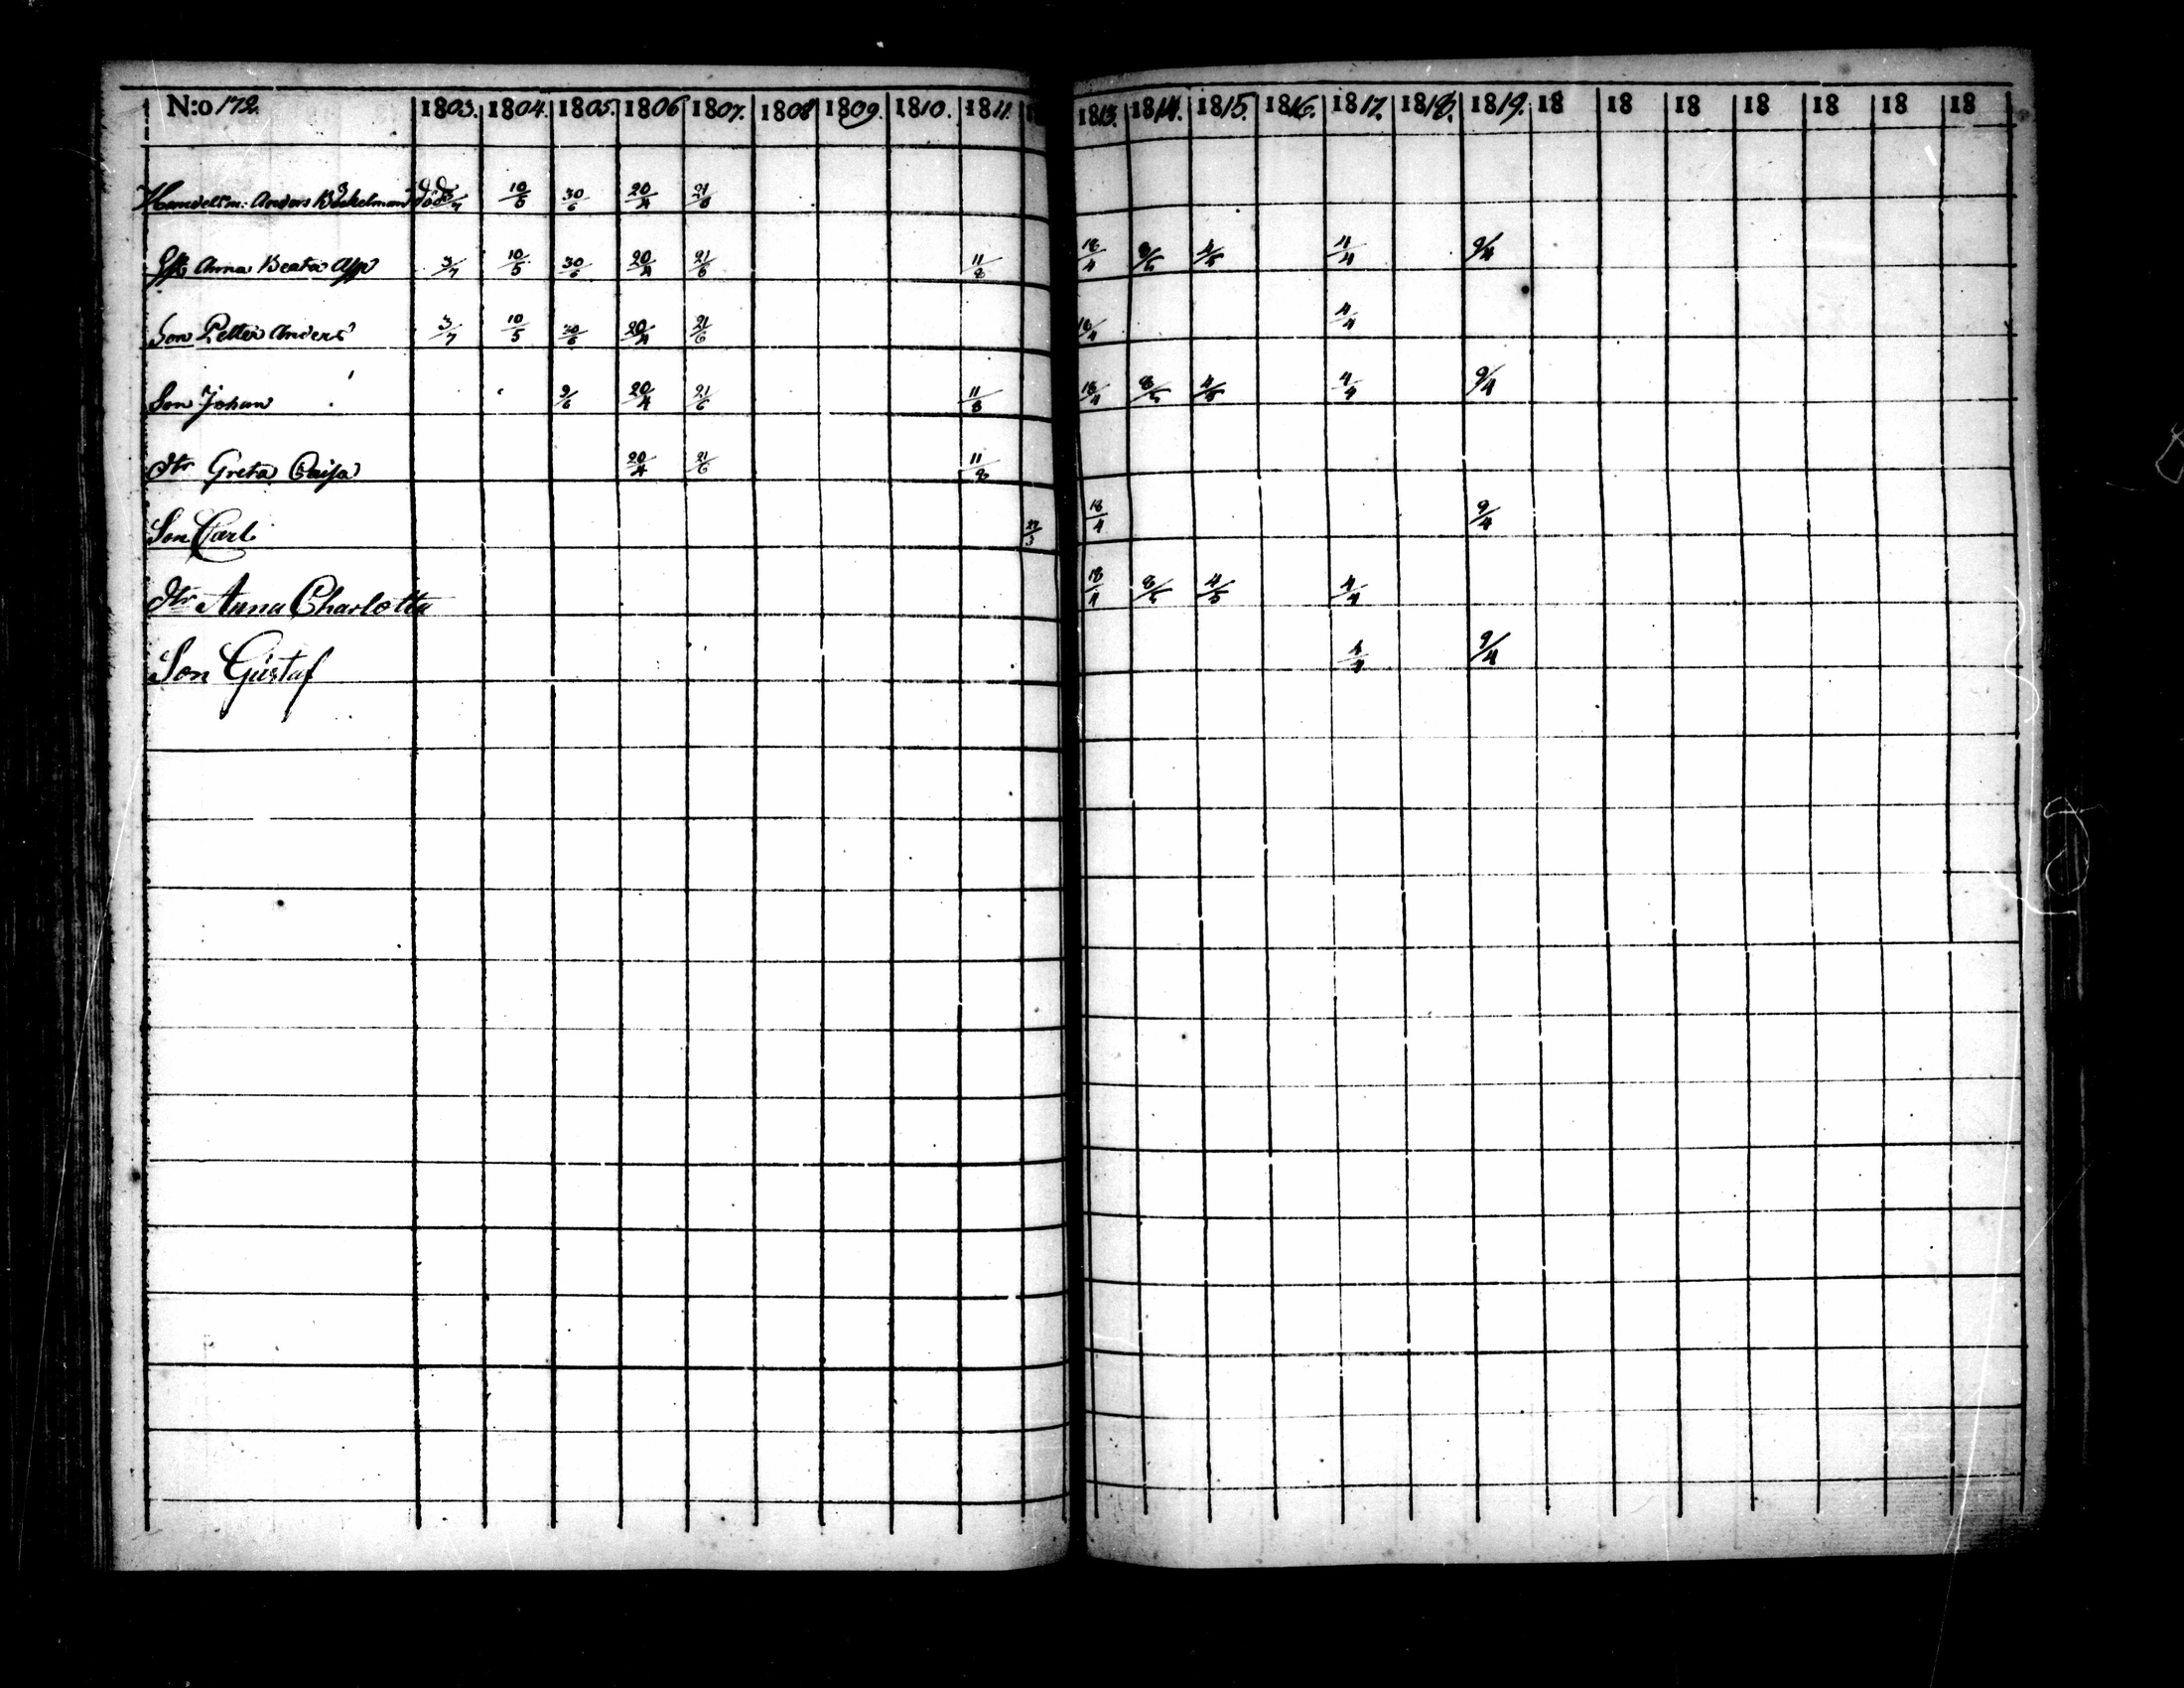 N:o 172 1803. 1804. 1805. 1806 1807. 1808 1809. 1810. 1811. 1813. 1814. 1815. 1816. 1817. 1818. 1819. 18 18 18 18 18 18 18
Handelsm: Anders död 10/5 30/6 20/4 21/6
Anna Beata 3/7 10/5 30/6 20/4 21/6 11/8 18/4 8/5 4/5 4/4 9/4
Son Petter Anders 3/7 10/5 30/6 20/4 21/6 18/4 4/4
Son Johan 9/6 20/4 21/6 11/8 18/4 8/5 4/5 4/4 9/4
dtr Greta Caisa 20/4 21/6 11/8
Son Carl 18/4 9/4
dtr Anna Charlotta 18/4 8/5 4/5 4/4
Son Gustaf 4/4 9/4